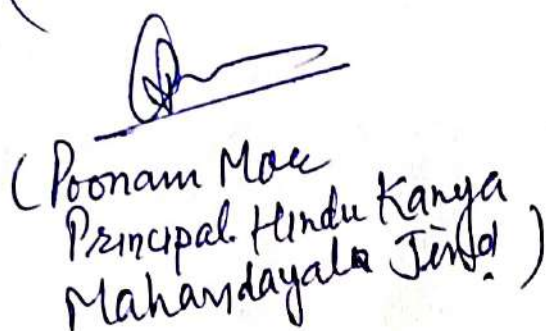 (Poonam Mor
Principal. Hindu Kanya
Mahavidayala Jind)